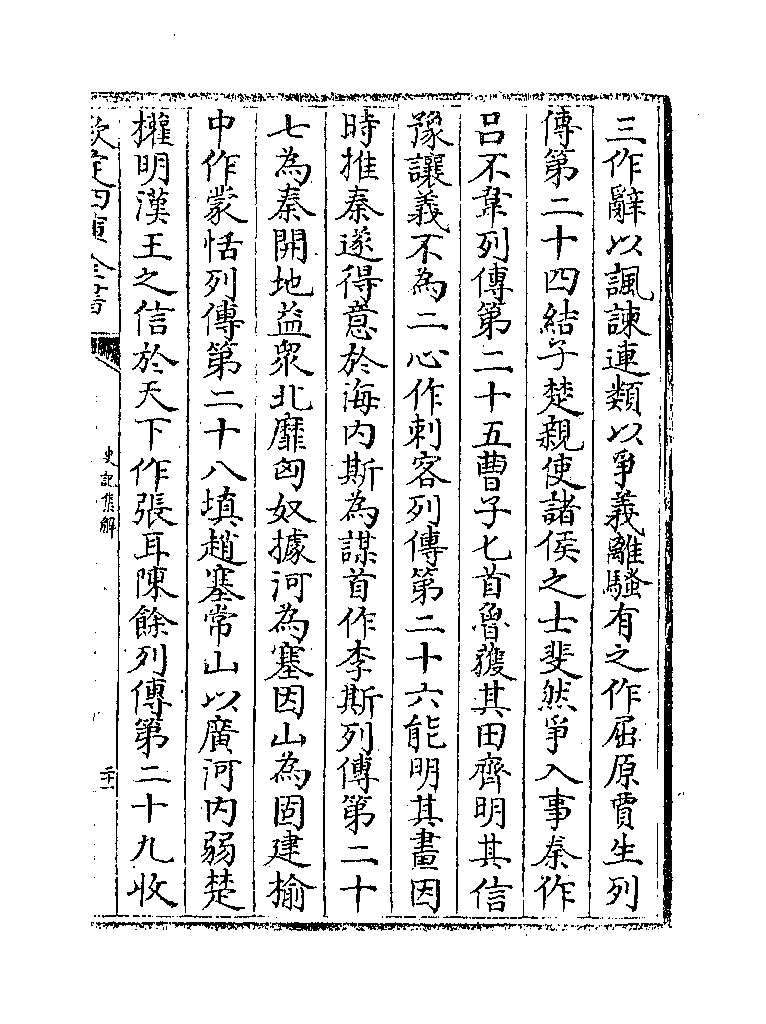 三作辭以諷諫連類以爭義離騷有之作屈原賈生列
傳第二十四結子楚親使諸侯之士斐然爭入事秦作
吕不韋列傳第二十五曹子匕首魯獲其田齊明其信
豫讓義不為二心作刺客列傳第二十六能明其畫因
時推秦遂得意於海内斯為謀首作李斯列傳第二十
七為秦開地益衆北靡匈奴據河為塞因山為固建榆
中作蒙恬列傳第二十八填趙塞常山以廣河内弱楚
權明漢王之信於天下作張耳陳餘列傳第二十九收
欽定四庫全書
史記集解